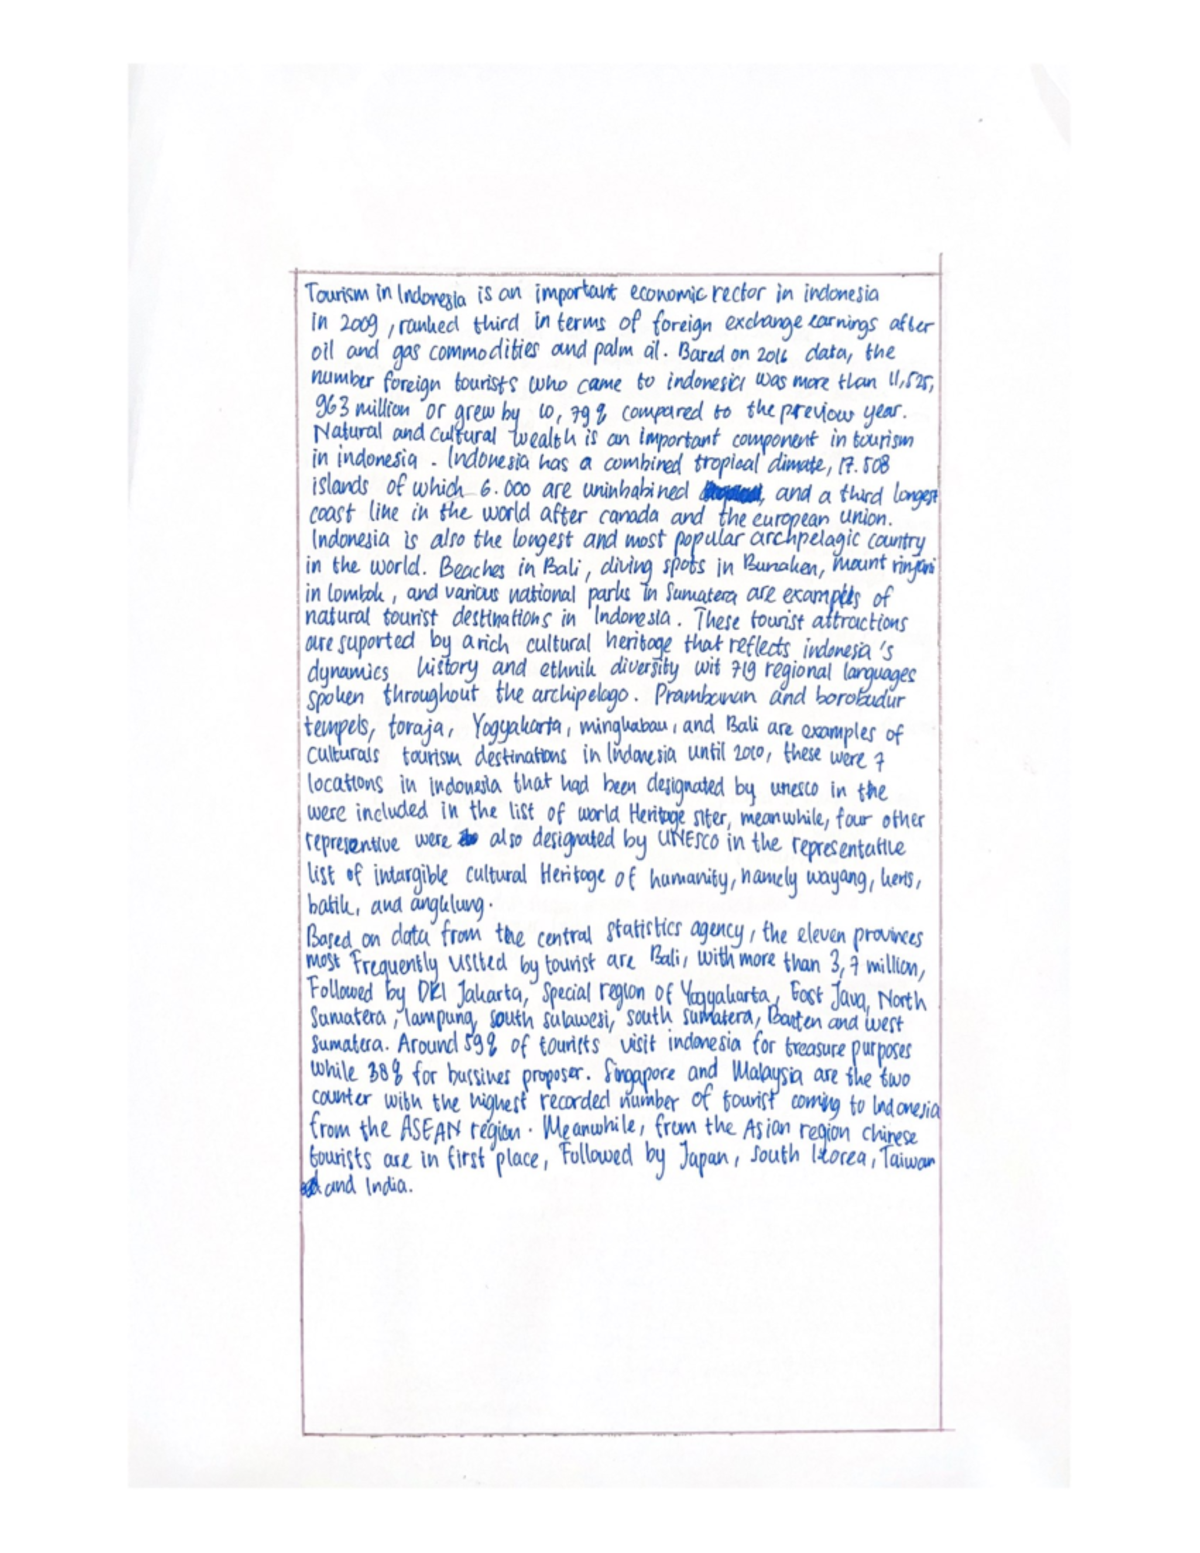 Tourism in Indonesia is an important economic rector in indonesia
in 2009, ranked third in terms of foreign exchange earnings after
oil and gas commodities and palm oil. Bared on 2016 data, the
number foreign tourists who came to indonesia was more than 11,525,
963 million or grew by 10, 79 % compared to the previous year.
Natural and Cultural wealth is an important component in tourism
in indonesia. Indonesia has a combined tropical climate, 17.508
islands of which 6.000 are uninhabined , and a third longest
coast line in the world after canada and the european union.
Indonesia is also the longest and most popular archpelagic country
in the world. Beaches in Bali, diving spots in Bunaken, mount rinjani
in lombok, and various national parks in Sumatera are examples of
natural tourist destinations in Indonesia. These tourist attractions
are suported by a rich cultural heritage that reflects indonesia's
dynamics history and ethnik diversity wit 719 regional languages
spoken throughout the archipelago. Prambanan and borobudur
tempels, toraja, Yogyakarta, mingkabau, and Bali are examples of
Culturals tourism destinations in Indonesia until 2010, these were 7
locations in indonesia that had been designated by unesco in the
were included in the list of world Heritage siter, meanwhile, four other
representive were also designated by UNESCO in the representative
list of intargible cultural Heritage of humanity, namely wayang, keris,
batik, and angklung.
Based on data from the central statistics agency, the eleven provinces
most Frequently usited by tourist are Bali, with more than 3,7 million,
Followed by DKI Jakarta, Special region of Yogyakarta, East Java, North
Sumatera, lampung, south sulawesi, south sumatera, Banten and west
Sumatera. Around 59% of tourists visit indonesia for treasure purposes
while 38% for bussines proposer. Singapore and Malaysia are the two
counter with the highest recorded number of tourist coming to Indonesia
from the ASEAN region. Meanwhile, from the Asian region chinese
tourists are in first place, Followed by Japan, South Korea, Taiwan
and India.